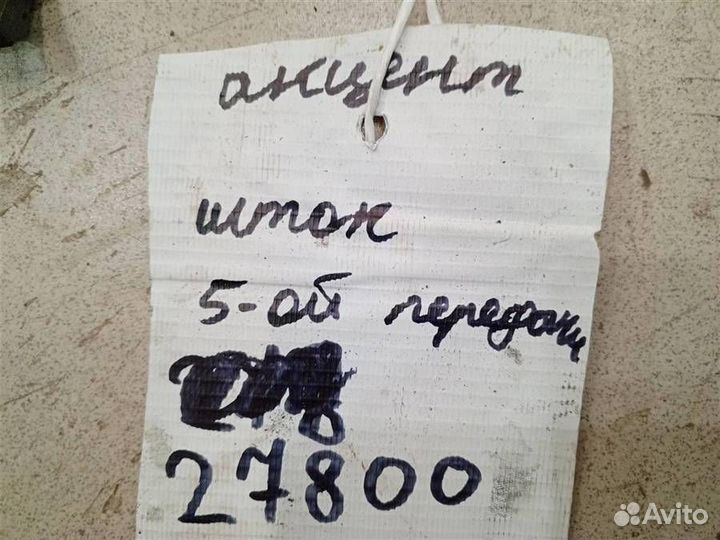 акцент
шток
5-ой передачи
27800
Avito